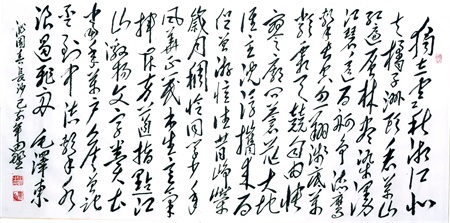 独立寒秋湘江北
去橘子洲头看万山
红遍层林尽染漫
江碧透百舸争流鹰
击长空鱼翔浅底万
类霜天竞自由怅
寥廓问苍茫大地
谁主沉浮携来百
侣曾游忆往昔峥嵘
岁月稠恰同学少年
风华正茂书生意气
挥斥方遒指点江
山激扬文字粪土
当年万户侯曾记
否到中流击水
浪遏飞舟 毛泽东
沁园春长沙